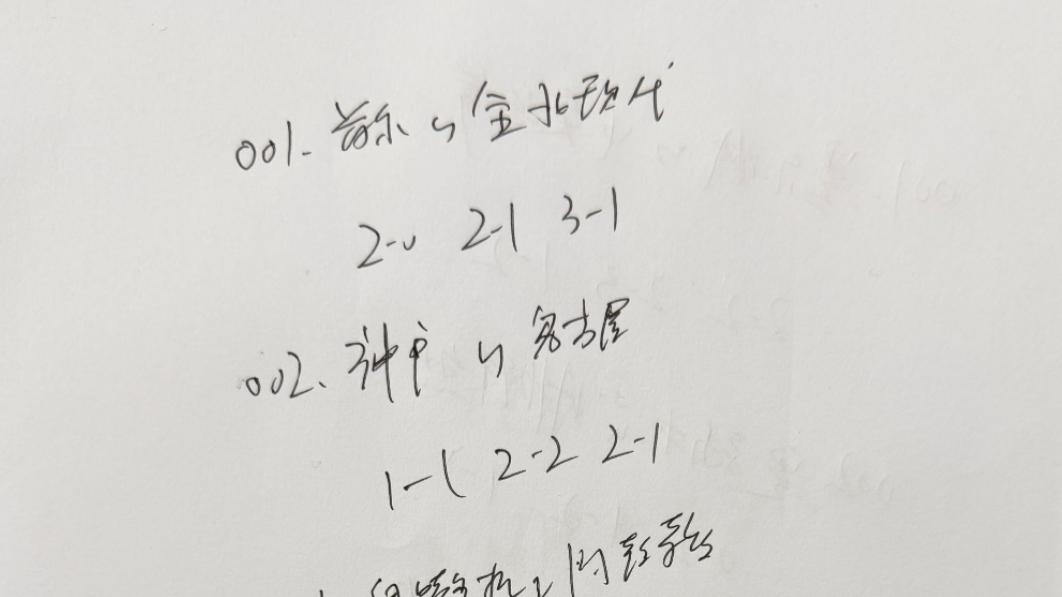 001. 首尔 vs 全北现代
2-0 2-1 3-1
002. 神户 vs 名古屋
1-1 2-2 2-1